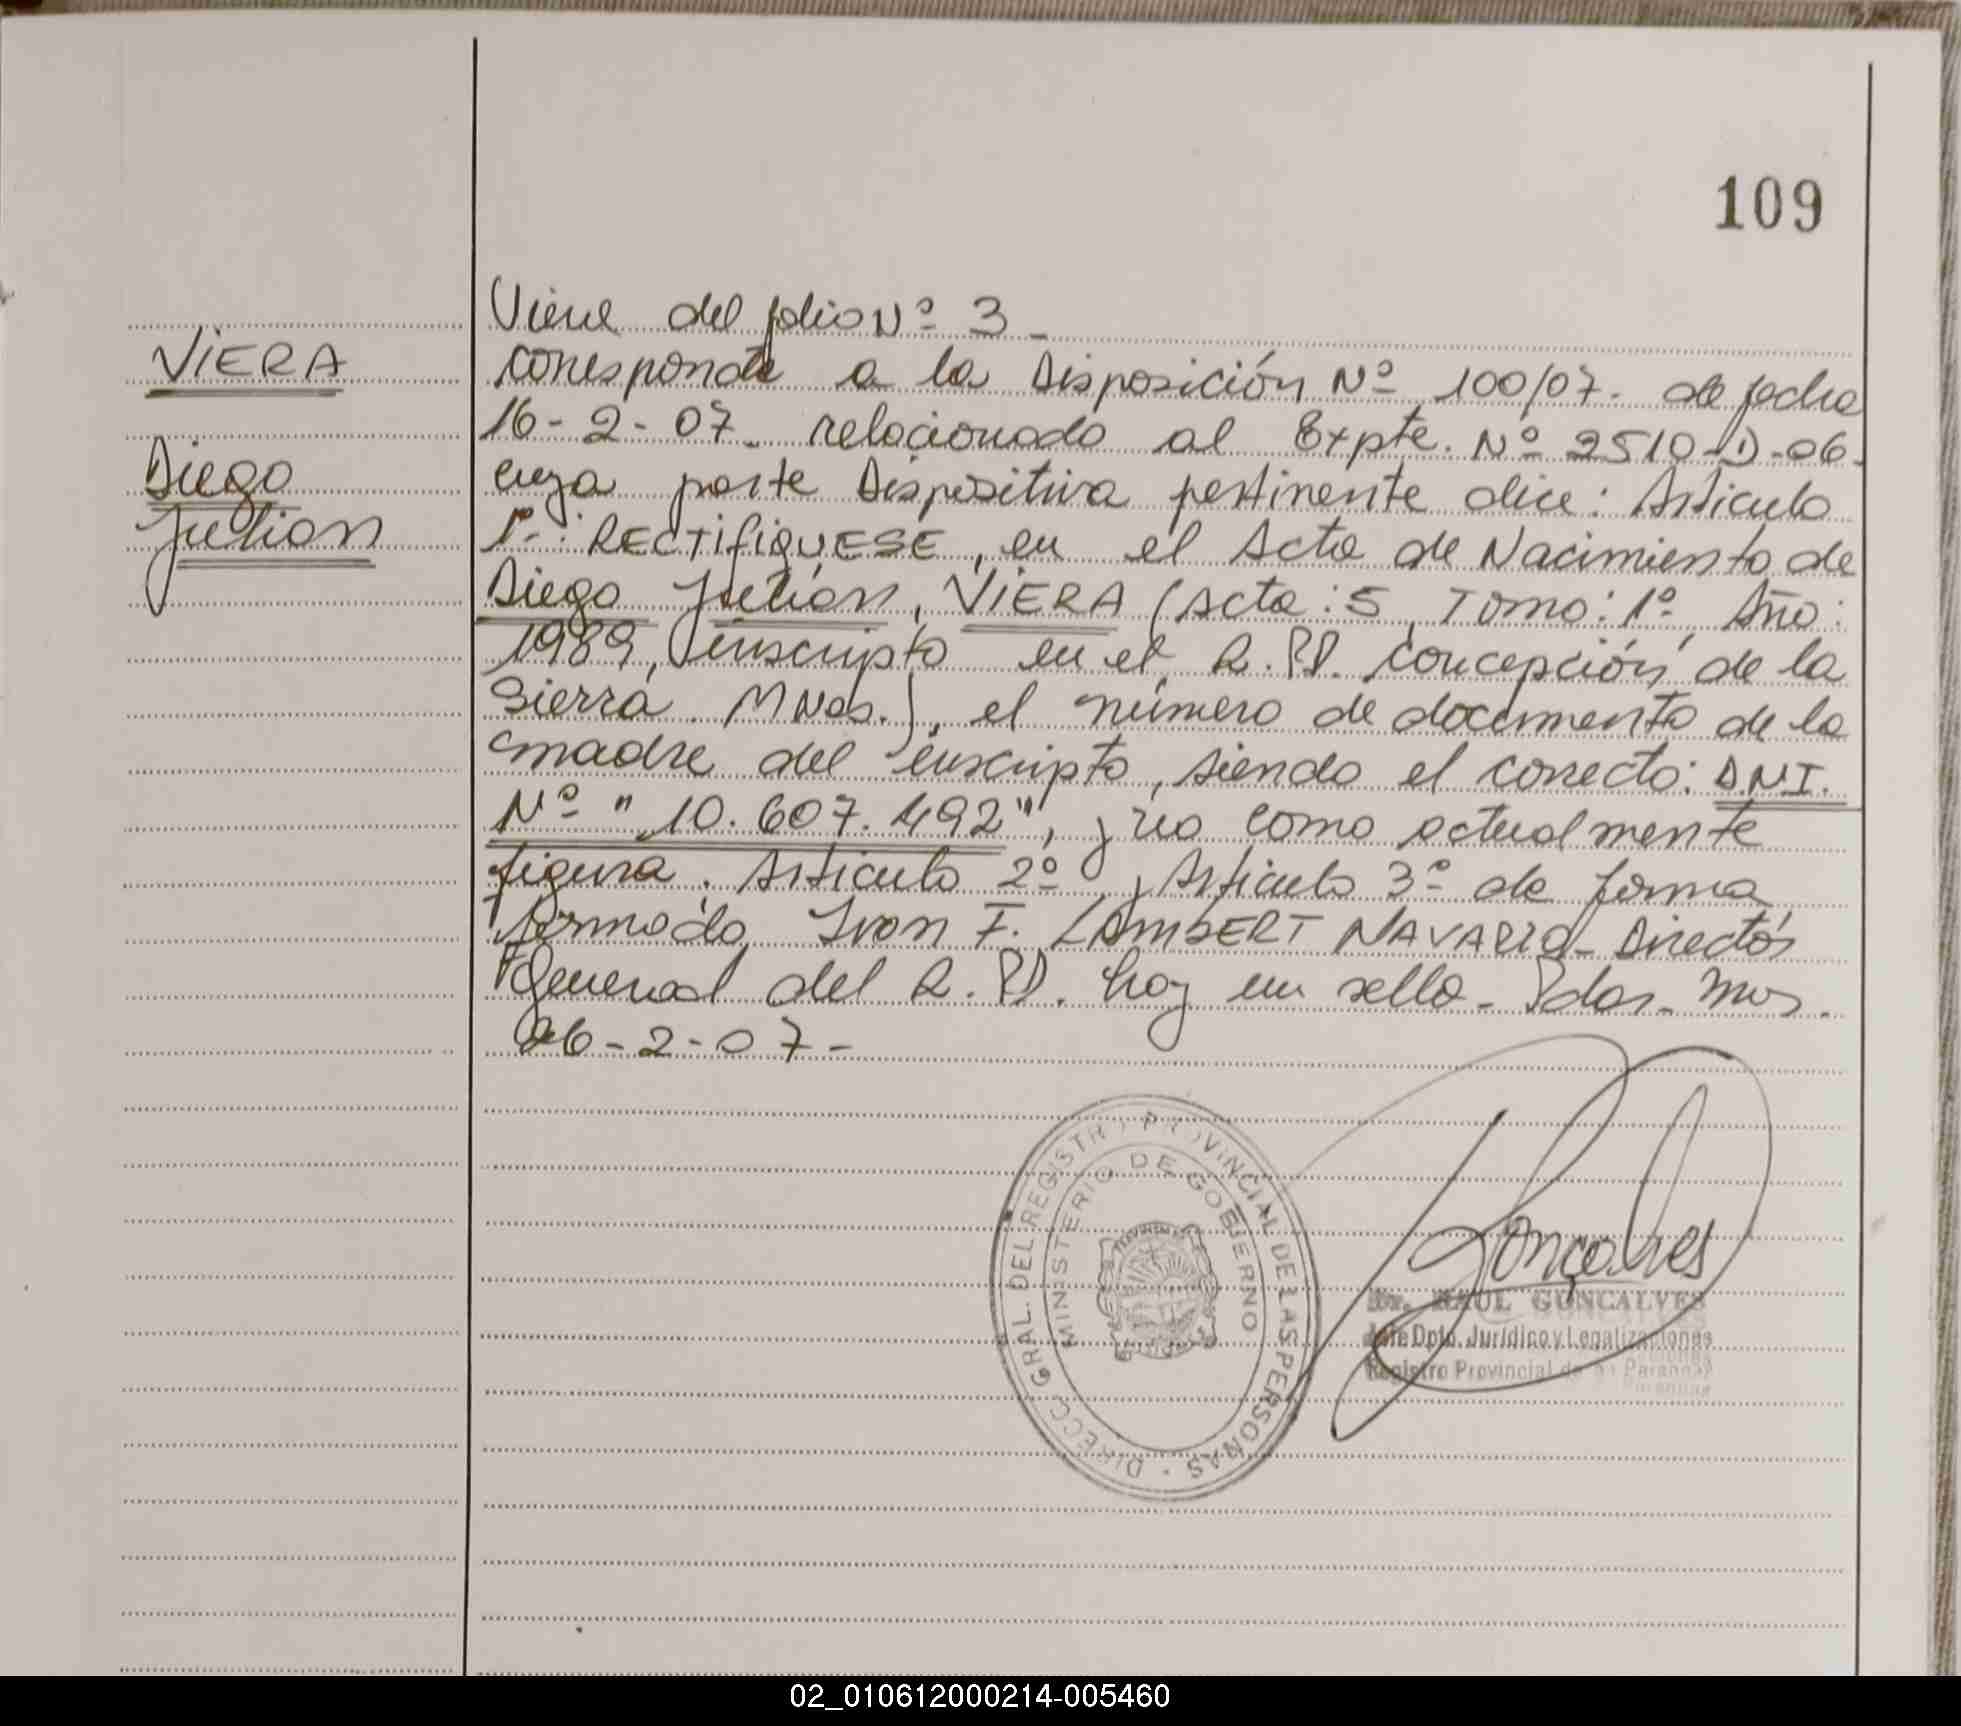 109
VIERA
Diego
Julián
Viene del folio Nº 3 -
Corresponde a la Disposición Nº 100/07. de fecha
16-2-07. relacionado al Expte. Nº 2510-D-06.
cuya parte Dispositiva pertinente dice: Artículo
1º.: RECTIFIQUESE, en el Acta de Nacimiento de
Diego Julián, VIERA (Acta: 5, Tomo: 1º, Año:
1989, inscripto en el R.P.P. Concepción de la
Sierra. MNes.), el número de documento de la
madre del inscripto, siendo el correcto: D.N.I.
Nº "10.607.492", y no como actualmente
figura. Artículo 2º y Artículo 3º de forma
firmado Ivon F. LAMBERT NAVARRO - Director
General del R.P.P. hay un sello - Pdas. Mnes.
26-2-07-
DIRECC. GRAL. DEL REGISTRO PROVINCIAL DE LAS PERSONAS
MINISTERIO DE GOBIERNO
Gonçalves
Dr. RAUL GONCALVES
Jefe Dpto. Jurídico y Legalizaciones
Registro Provincial de las Personas
02_010612000214-005460